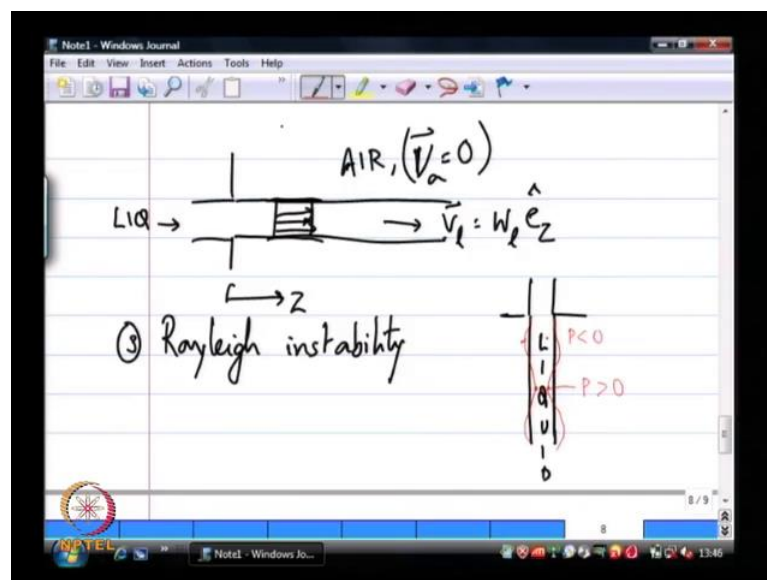 Note1 - Windows Journal
File Edit View Insert Actions Tools Help
AIR, (V⃗ₐ = 0)
LIQ → → V⃗ₗ = Wₗ ê_z
→ Z
③ Rayleigh instability
P<0
P>0
L
I
Q
U
I
D
8/9
8
NPTEL
Note1 - Windows Jo...
13:46